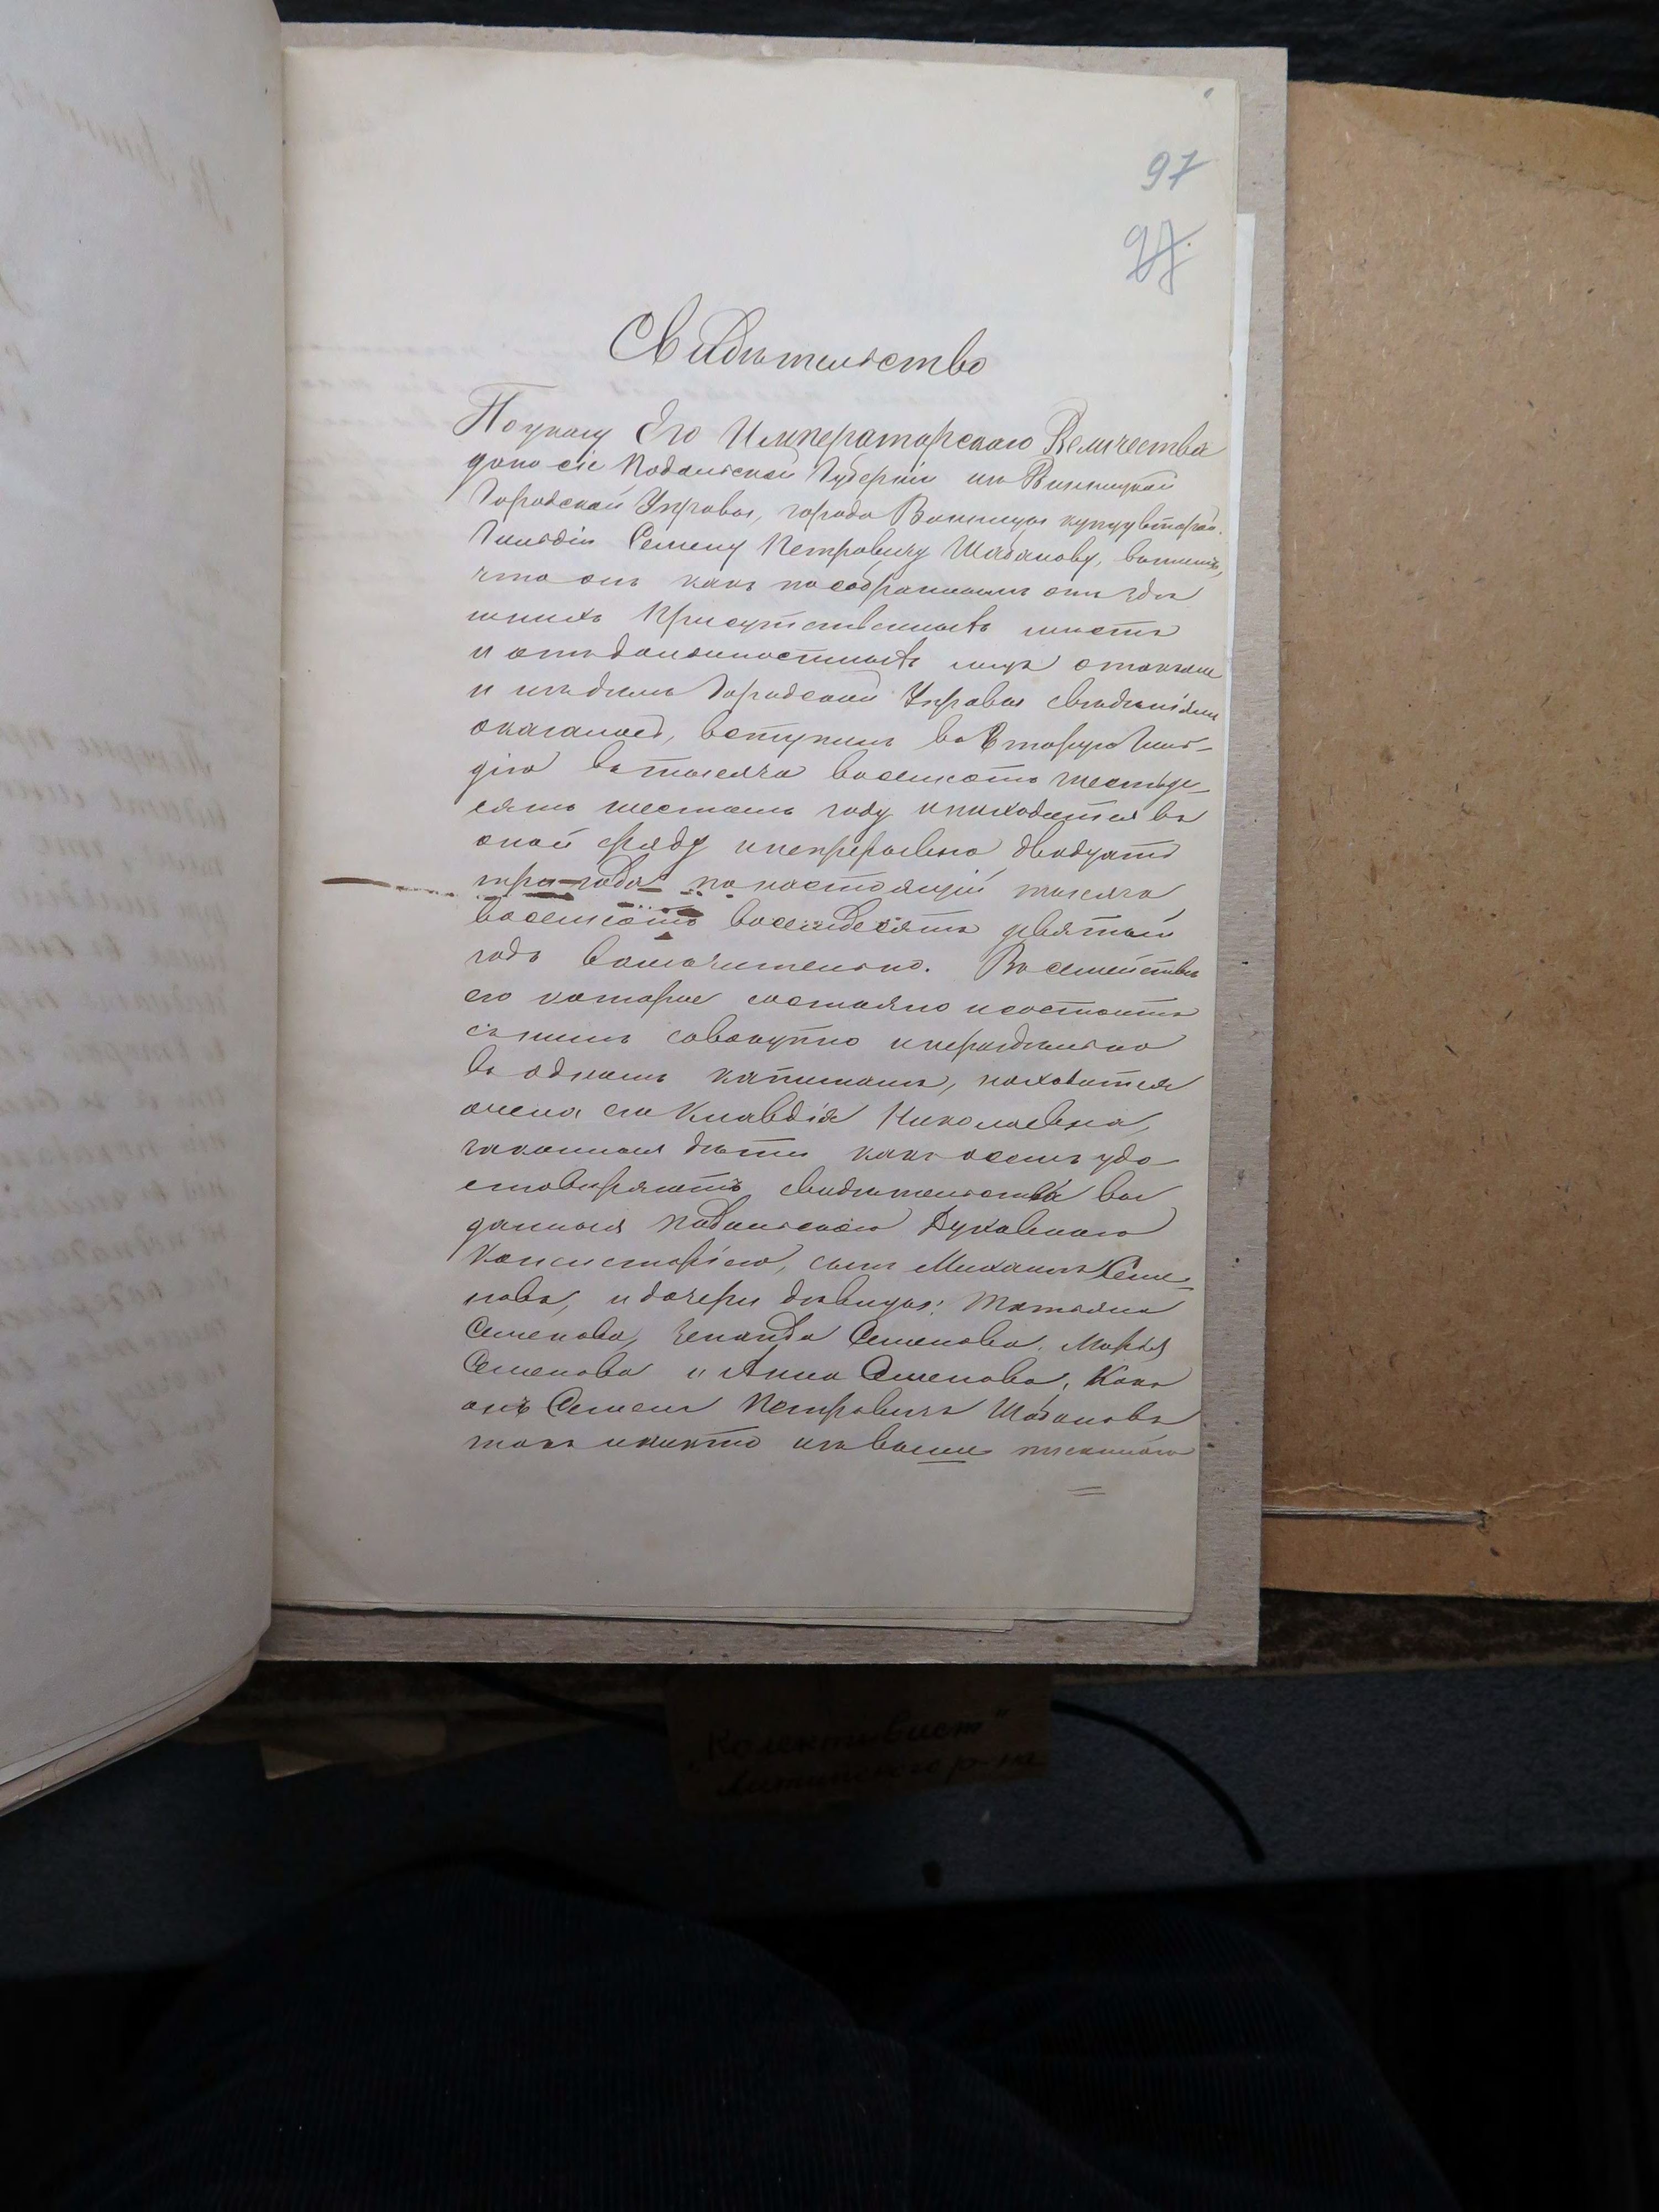 97
97.
Свидѣтельство
По указу Его Императорскаго Величества
дано сіе Подольской Губерніи изъ Винницкой
Городской Управы, города Винницы купцу второй
Гильдіи Семену Петровичу Шабанову, въ томъ,
что онъ какъ по собраннымъ отъ здѣ
шнихъ Присутственныхъ мѣстъ
и отъ должностныхъ лицъ
и изъ дѣлъ Городской Управы свѣдѣніямъ
оказалось, вступилъ во Вторую Гиль-
дію въ тысяча восемсотъ шестьде-
сять шестомъ году и находится въ
оной сряду и непрерывно двадцать
три года по настоящій тысяча
восемсотъ восемдесятъ девятый
годъ включительно. Въ семействѣ
его которое состояло и состоитъ
съ нимъ совокупно и нераздѣльно
въ одномъ капиталѣ, находятся
жена его Клавдія Николаевна,
законныя дѣти какъ о семъ удо
стовѣряютъ свидѣтельства вы
данныя Подольскою Духовною
Консисторіею, сынъ Михаилъ Семе-
новъ, и дочери дѣвицы: Татьяна
Семенова, Зенаида Семенова, Марья
Семенова и Анна Семенова, Какъ
онъ Семенъ Петровичъ Шабановъ
такъ и никто изъ выше писаннаго
"Колективист"
р-на